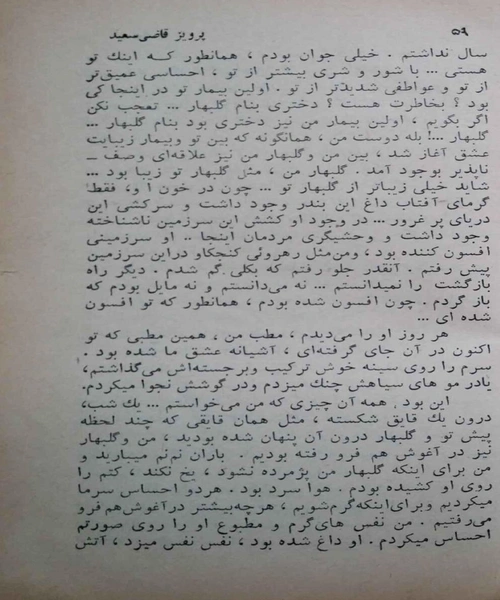 ۵۹
پرویز قاضی سعید
سال نداشتم . خیلی جوان بودم ، همانطور که اینك تو
هستی ... با شور و شری بیشتر از تو ، احساسی عمیق‌تر
از تو و عواطفی شدیدتر از تو . اولین بیمار تو در اینجا کی
بود ؟ بخاطرت هست ؟ دختری بنام گلبهار ... تعجب نکن
اگر بگویم ، اولین بیمار من نیز دختری بود بنام گلبهار ...
گلبهار ...! بله دوست من ، همانگونه که بین تو وبیمار زیبایت
عشق آغاز شد ، بین من وگلبهار من نیز علاقه‌ای وصف ـ
ناپذیر بوجود آمد . گلبهار من ، مثل گلبهار تو زیبا بود ...
شاید خیلی زیباتر از گلبهار تو ... چون در خون او ، فقط
گرمای آفتاب داغ این بندر وجود داشت و سرکشی این
دریای پر غرور ... در وجود او کشش این سرزمین ناشناخته
وجود داشت و وحشیگری مردمان اینجا .. او سرزمینی
افسون کننده بود ، ومن‌مثل رهروئی کنجکاو دراین سرزمین
پیش رفتم . آنقدر جلو رفتم که بکلی گم شدم . دیگر راه
بازگشت را نمیدانستم ... نه می‌دانستم و نه مایل بودم که
باز گردم . چون افسون شده بودم ، همانطور که تو افسون
شده ای ...
هر روز او را می‌دیدم ، مطب من ، همین مطبی که تو
اکنون در آن جای گرفته‌ای ، آشیانه عشق ما شده بود .
سرم را روی سینه خوش ترکیب وبرجسته‌اش می‌گذاشتم،
یادر مو های سیاهش چنك میزدم ودر گوشش نجوا میکردم.
این بود همه آن چیزی که من می‌خواستم ... یك شب،
درون یك قایق شکسته ، مثل همان قایقی که چند لحظه
پیش تو و گلبهار درون آن پنهان شده بودید ، من وگلبهار
نیز در آغوش هم فرو رفته بودیم . باران نم‌نم میبارید و
من برای اینکه گلبهار من پژمرده نشود ، یخ نکند ، کتم را
روی او کشیده بودم . هوا سرد بود . هردو احساس سرما
میکردیم وبرای‌اینکه‌گرم‌شویم ، هرچه‌بیشتر درآغوش‌هم‌فرو
می‌رفتیم . من نفس های‌گرم و مطبوع او را روی صورتم
احساس میکردم . او داغ شده بود ، نفس نفس میزد ، آتش